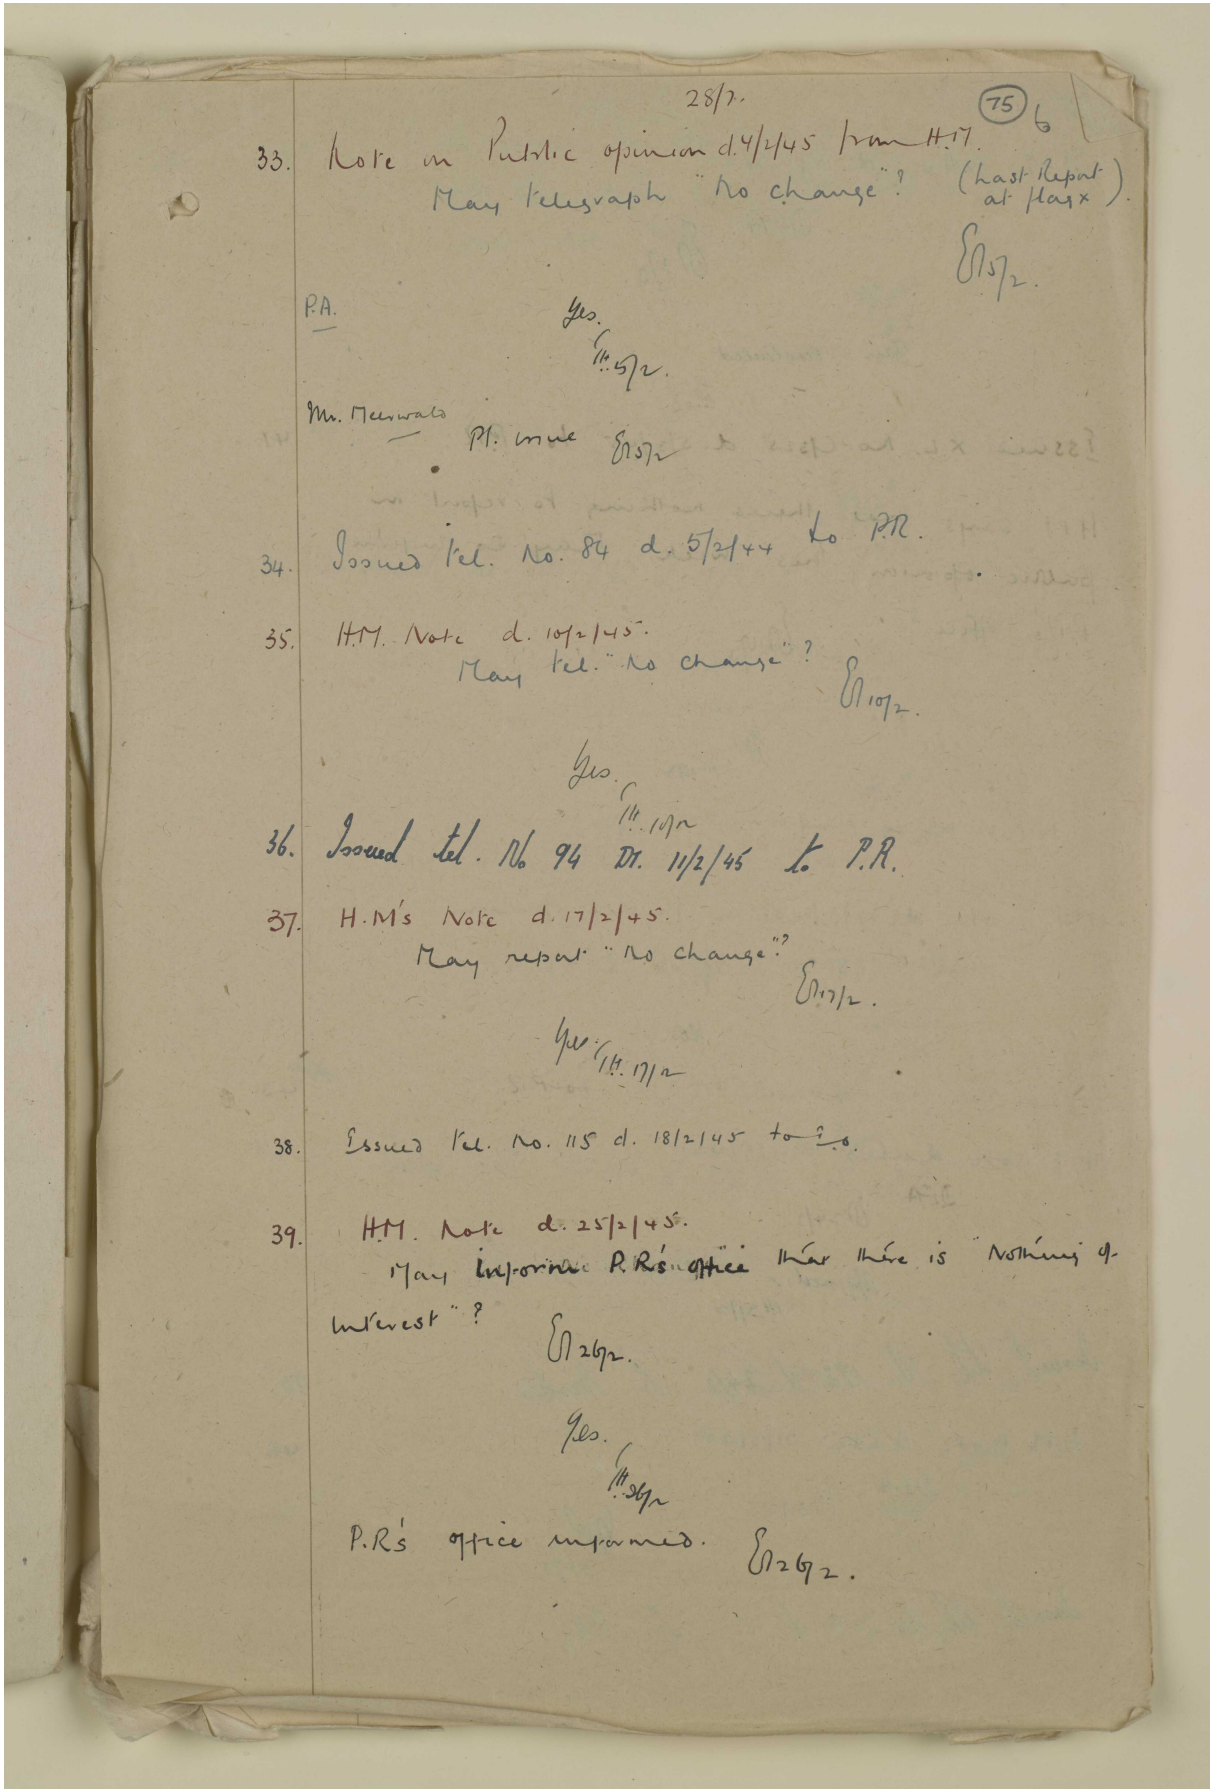 28/7.
75
6
33. Note on Public opinion d. 4/2/45 from H.M.
May telegraph "No change"? (Last Report
at flag x).
5/2.
P.A.
Yes.
5/2.
Mr. Meerwald
Pl. issue 5/2
34. Issued tel. No. 84 d. 5/2/44 to P.R.
35. H.M. Note d. 10/2/45.
May tel. "No change"?
10/2.
Yes.
10/2
36. Issued tel. No 94 Dt. 11/2/45 to P.R.
37. H.M's Note d. 17/2/45.
May report "No change"?
17/2.
Yes.
17/2
38. Issued tel. No. 115 d. 18/2/45 to
39. H.M. Note d. 25/2/45.
May inform P.R's office that there is "Nothing of
interest"?
26/2.
Yes.
26/2
P.R's office informed.
26/2.